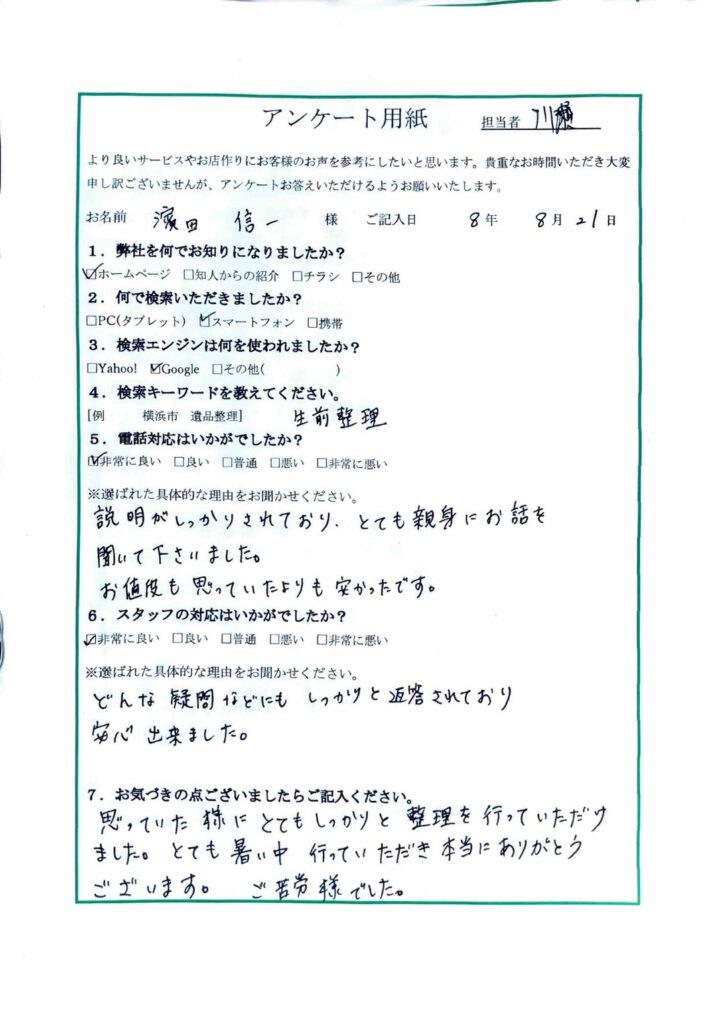 アンケート用紙 担当者 川瀬
より良いサービスやお店作りにお客様のお声を参考にしたいと思います。貴重なお時間いただき大変
申し訳ございませんが、アンケートお答えいただけるようお願いいたします。
お名前 濱田 信一 様 ご記入日 8年 8月21日
1．弊社を何でお知りになりましたか？
☑ホームページ □知人からの紹介 □チラシ □その他
2．何で検索いただきましたか？
□PC(タブレット) ☑スマートフォン □携帯
3．検索エンジンは何を使われましたか？
□Yahoo! ☑Google □その他( )
4．検索キーワードを教えてください。
[例 横浜市 遺品整理] 生前整理
5．電話対応はいかがでしたか？
☑非常に良い □良い □普通 □悪い □非常に悪い
※選ばれた具体的な理由をお聞かせください。
説明がしっかりされており、とても親身にお話を
聞いて下さいました。
お値段も思っていたよりも安かったです。
6．スタッフの対応はいかがでしたか？
☑非常に良い □良い □普通 □悪い □非常に悪い
※選ばれた具体的な理由をお聞かせください。
どんな疑問などにもしっかりと返答されており
安心出来ました。
7．お気づきの点ございましたらご記入ください。
思っていた様にとてもしっかりと整理を行っていただけ
ました。とても暑い中行っていただき本当にありがとう
ございます。 ご苦労様でした。